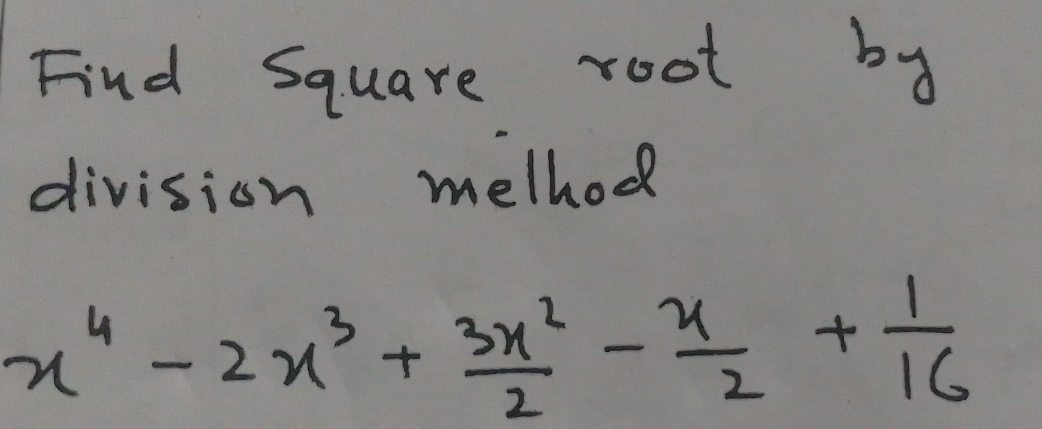 Find Square root by
division method
x⁴ - 2x³ + 3x²/2 - x/2 + 1/16